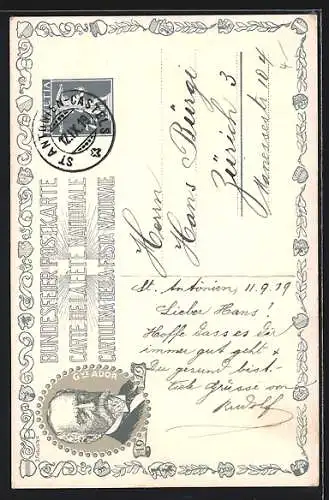 HELVETIA
ST ANTÖNIEN-CASTELS
12.IX.19
BUNDESFEIER-POSTKARTE
CARTE DE LA FÊTE NATIONALE
CARTOLINA DELLA FESTA NAZIONALE
GVE ADOR
1919
Herrn
Hans Bürgi
Zürich 3
Manessestr. 104
St. Antönien, 11.9.19
Lieber Hans!
Hoffe dass es dir
immer gut geht &
Du gesund bist.
Grüsse von
Rudolf